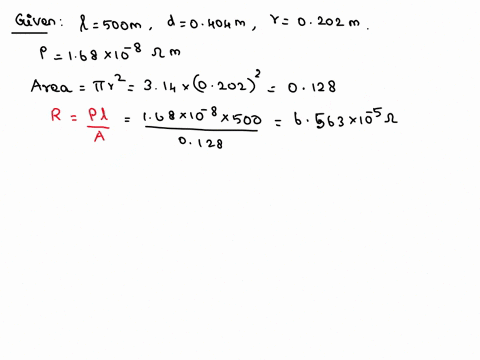 Given: l = 500m, d = 0.404m, r = 0.202m.
ρ = 1.68 × 10⁻⁸ Ω m
Area = πr² = 3.14 × (0.202)² = 0.128
R = ρl/A = 1.68 × 10⁻⁸ × 500/0.128 = 6.563 × 10⁻⁵ Ω